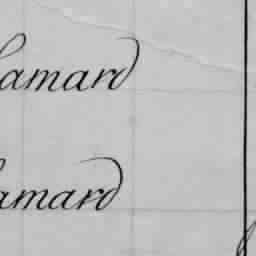 lamard
lamard